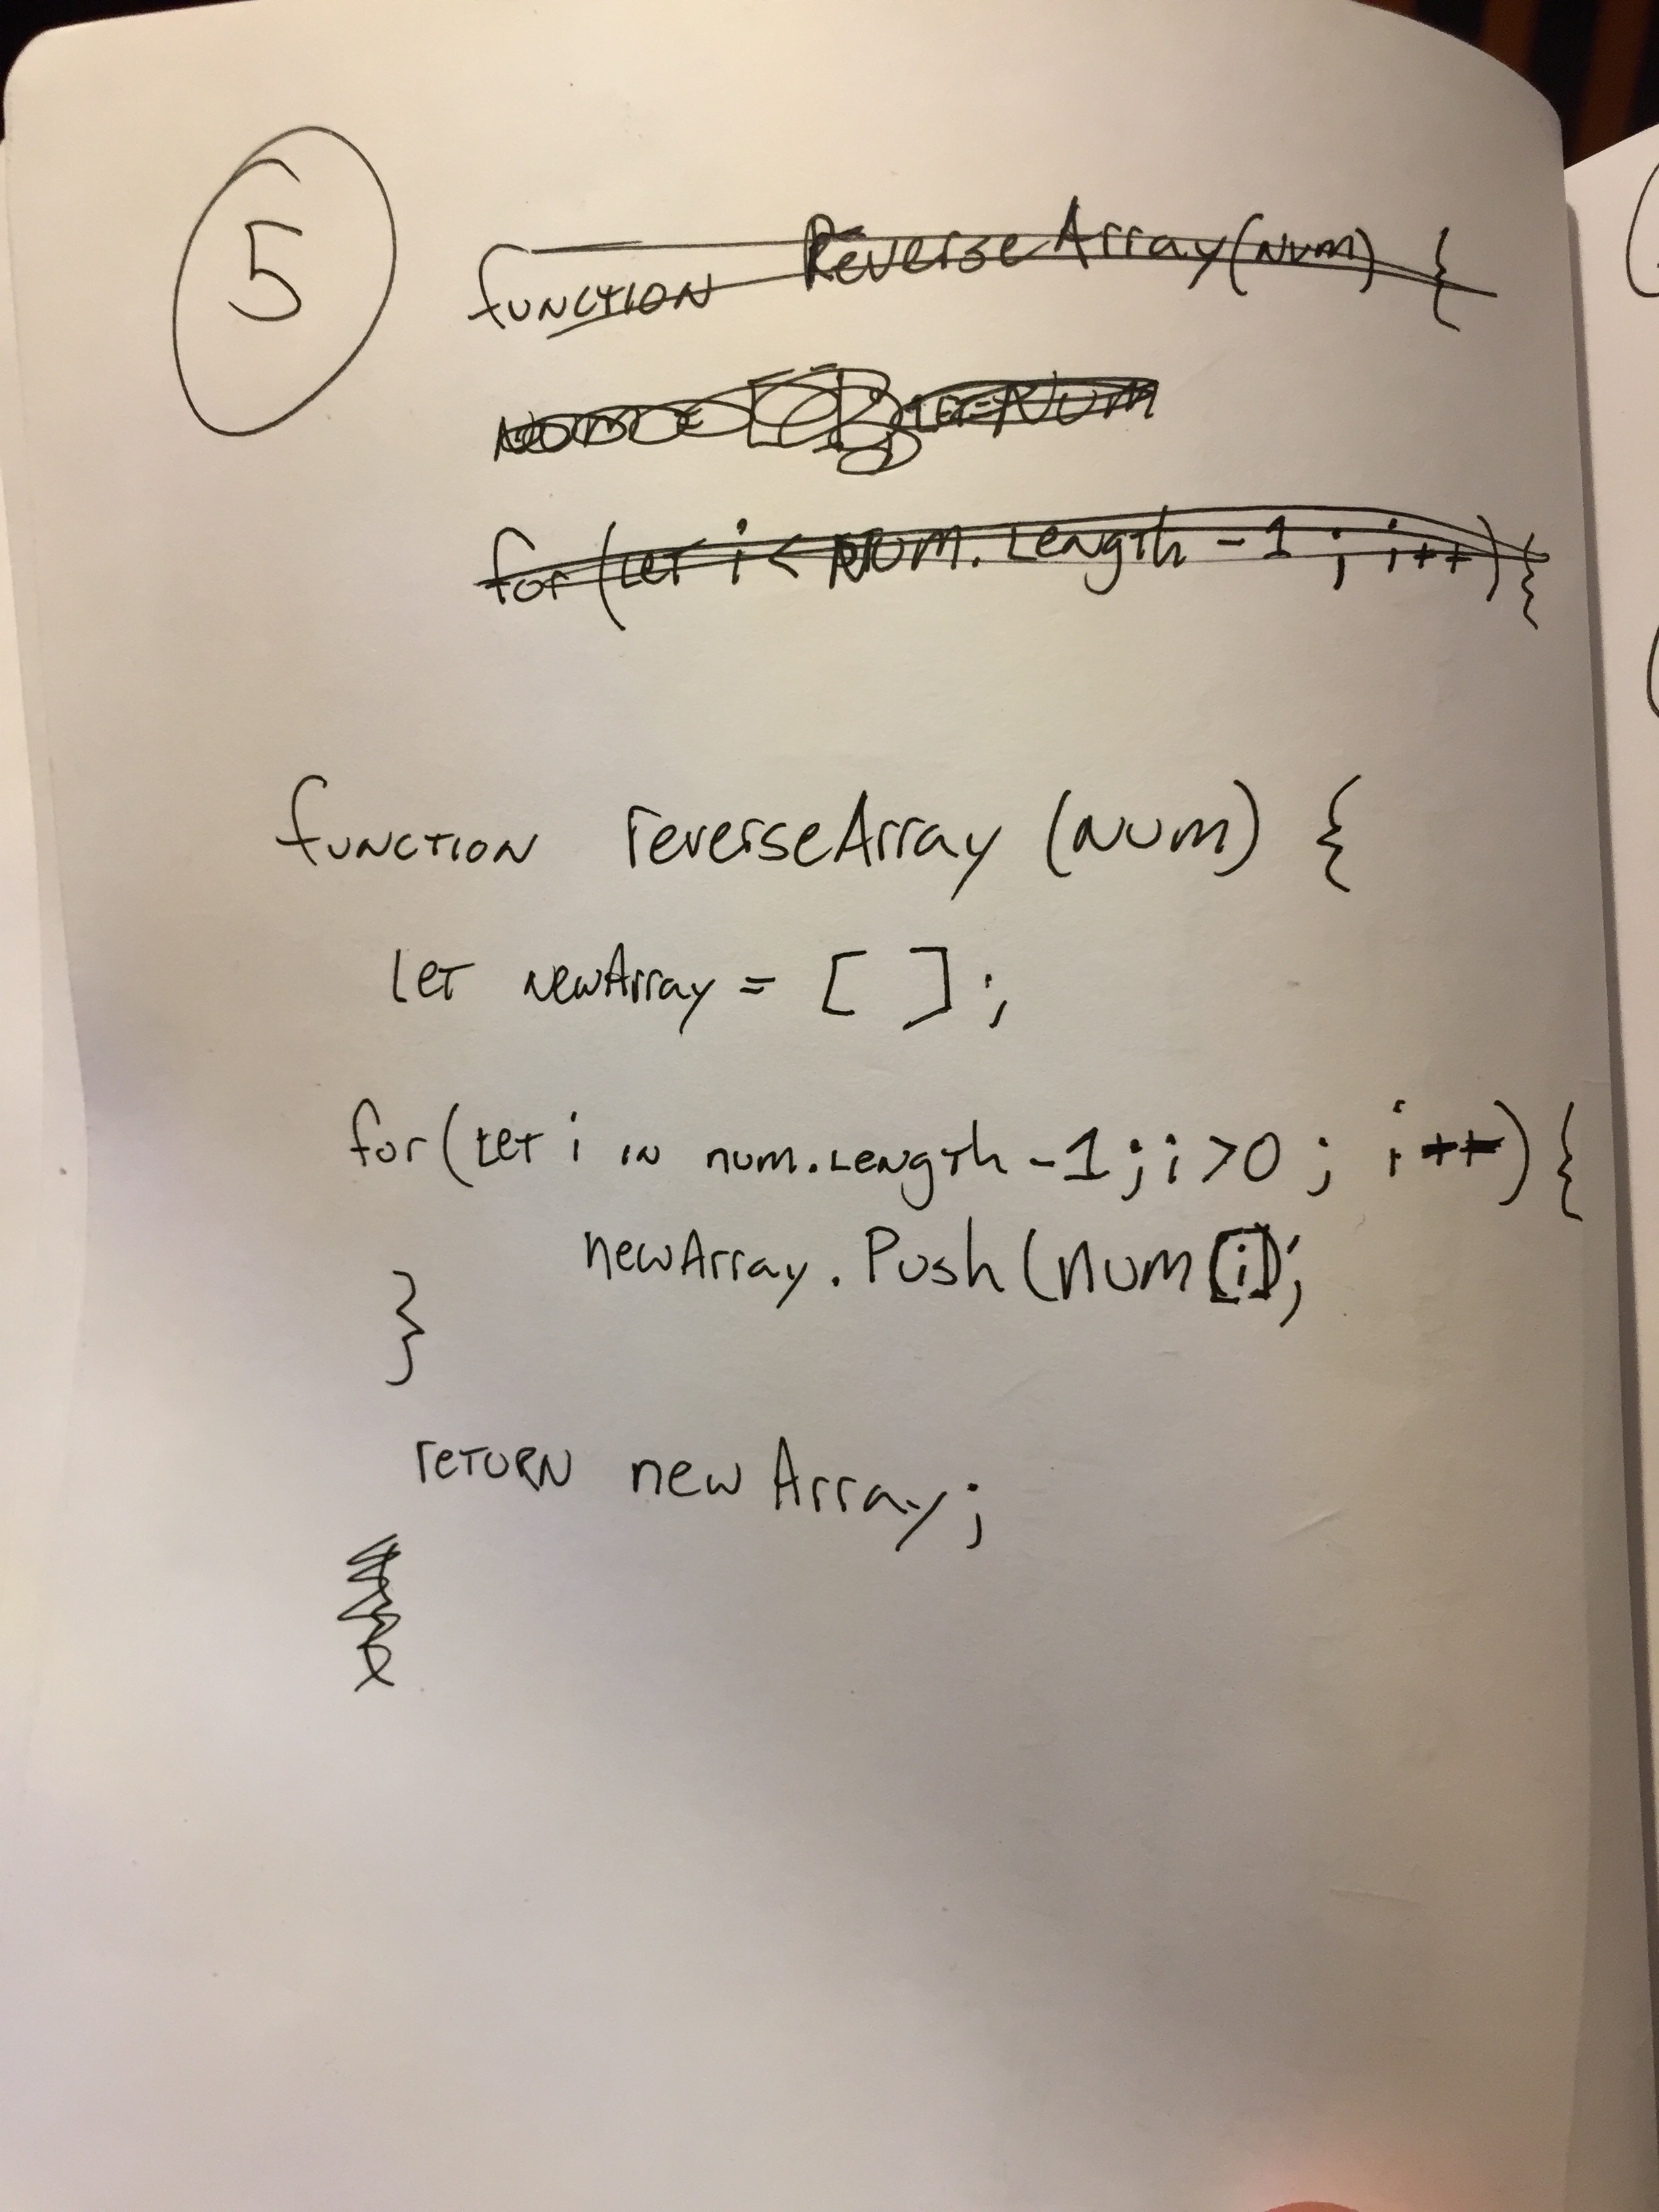 5
function ReverseArray(Num) {
Num
for(let i < Num.Length -1 ; i++){
function reverseArray (Num) {
let newArray = [ ];
for(let i in num.Length -1; i>0 ; i++){
newArray.Push(num[i]);
}
return newArray;